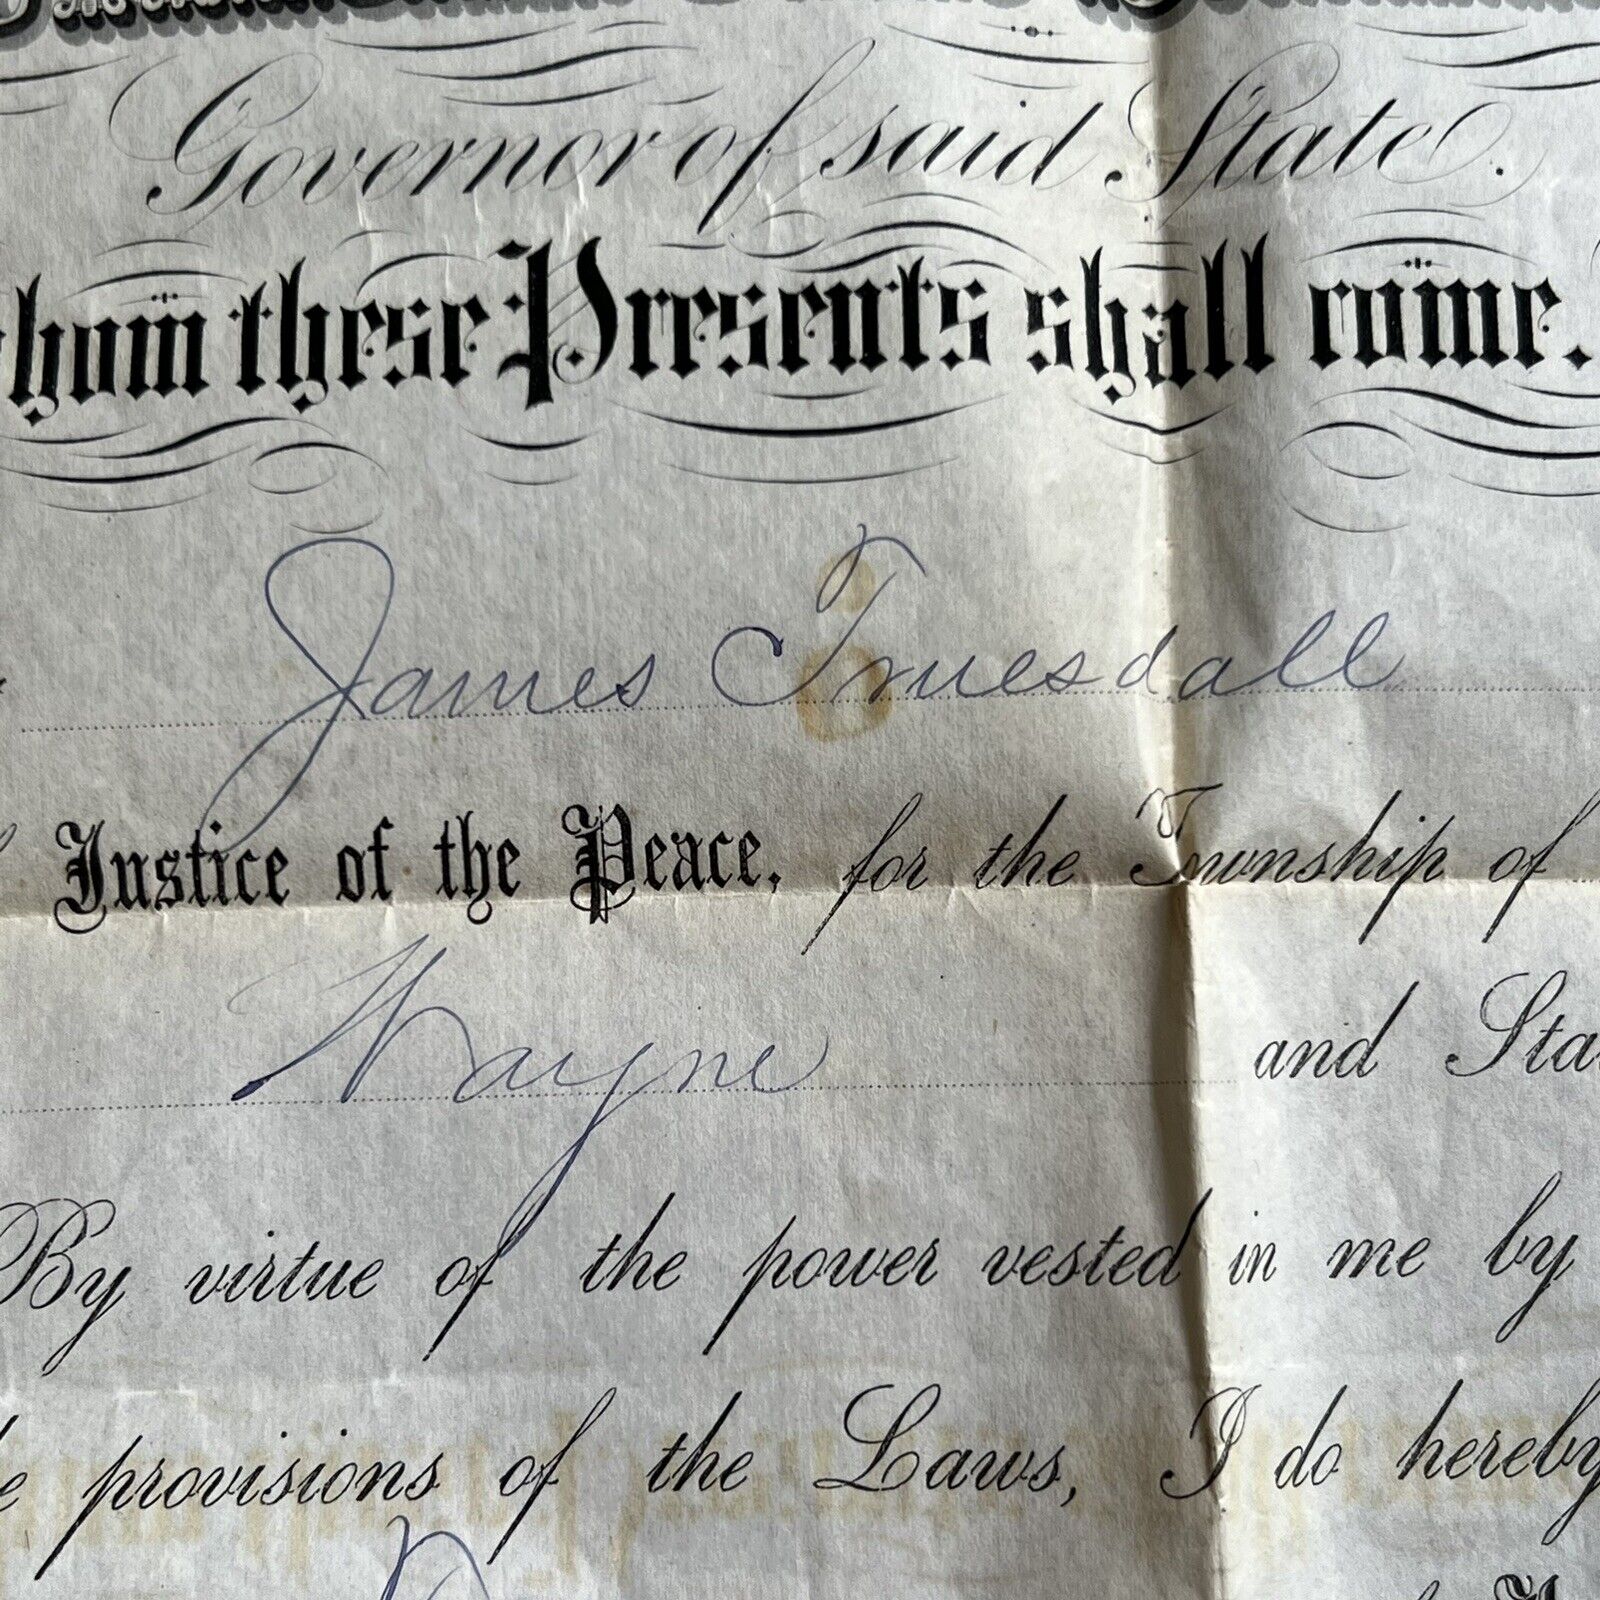 Governor of said State.
whom these Presents shall come.
James Truesdall
Justice of the Peace, for the Township of
Wayne and Sta
By virtue of the power vested in me by
provisions of the Laws, I do hereby